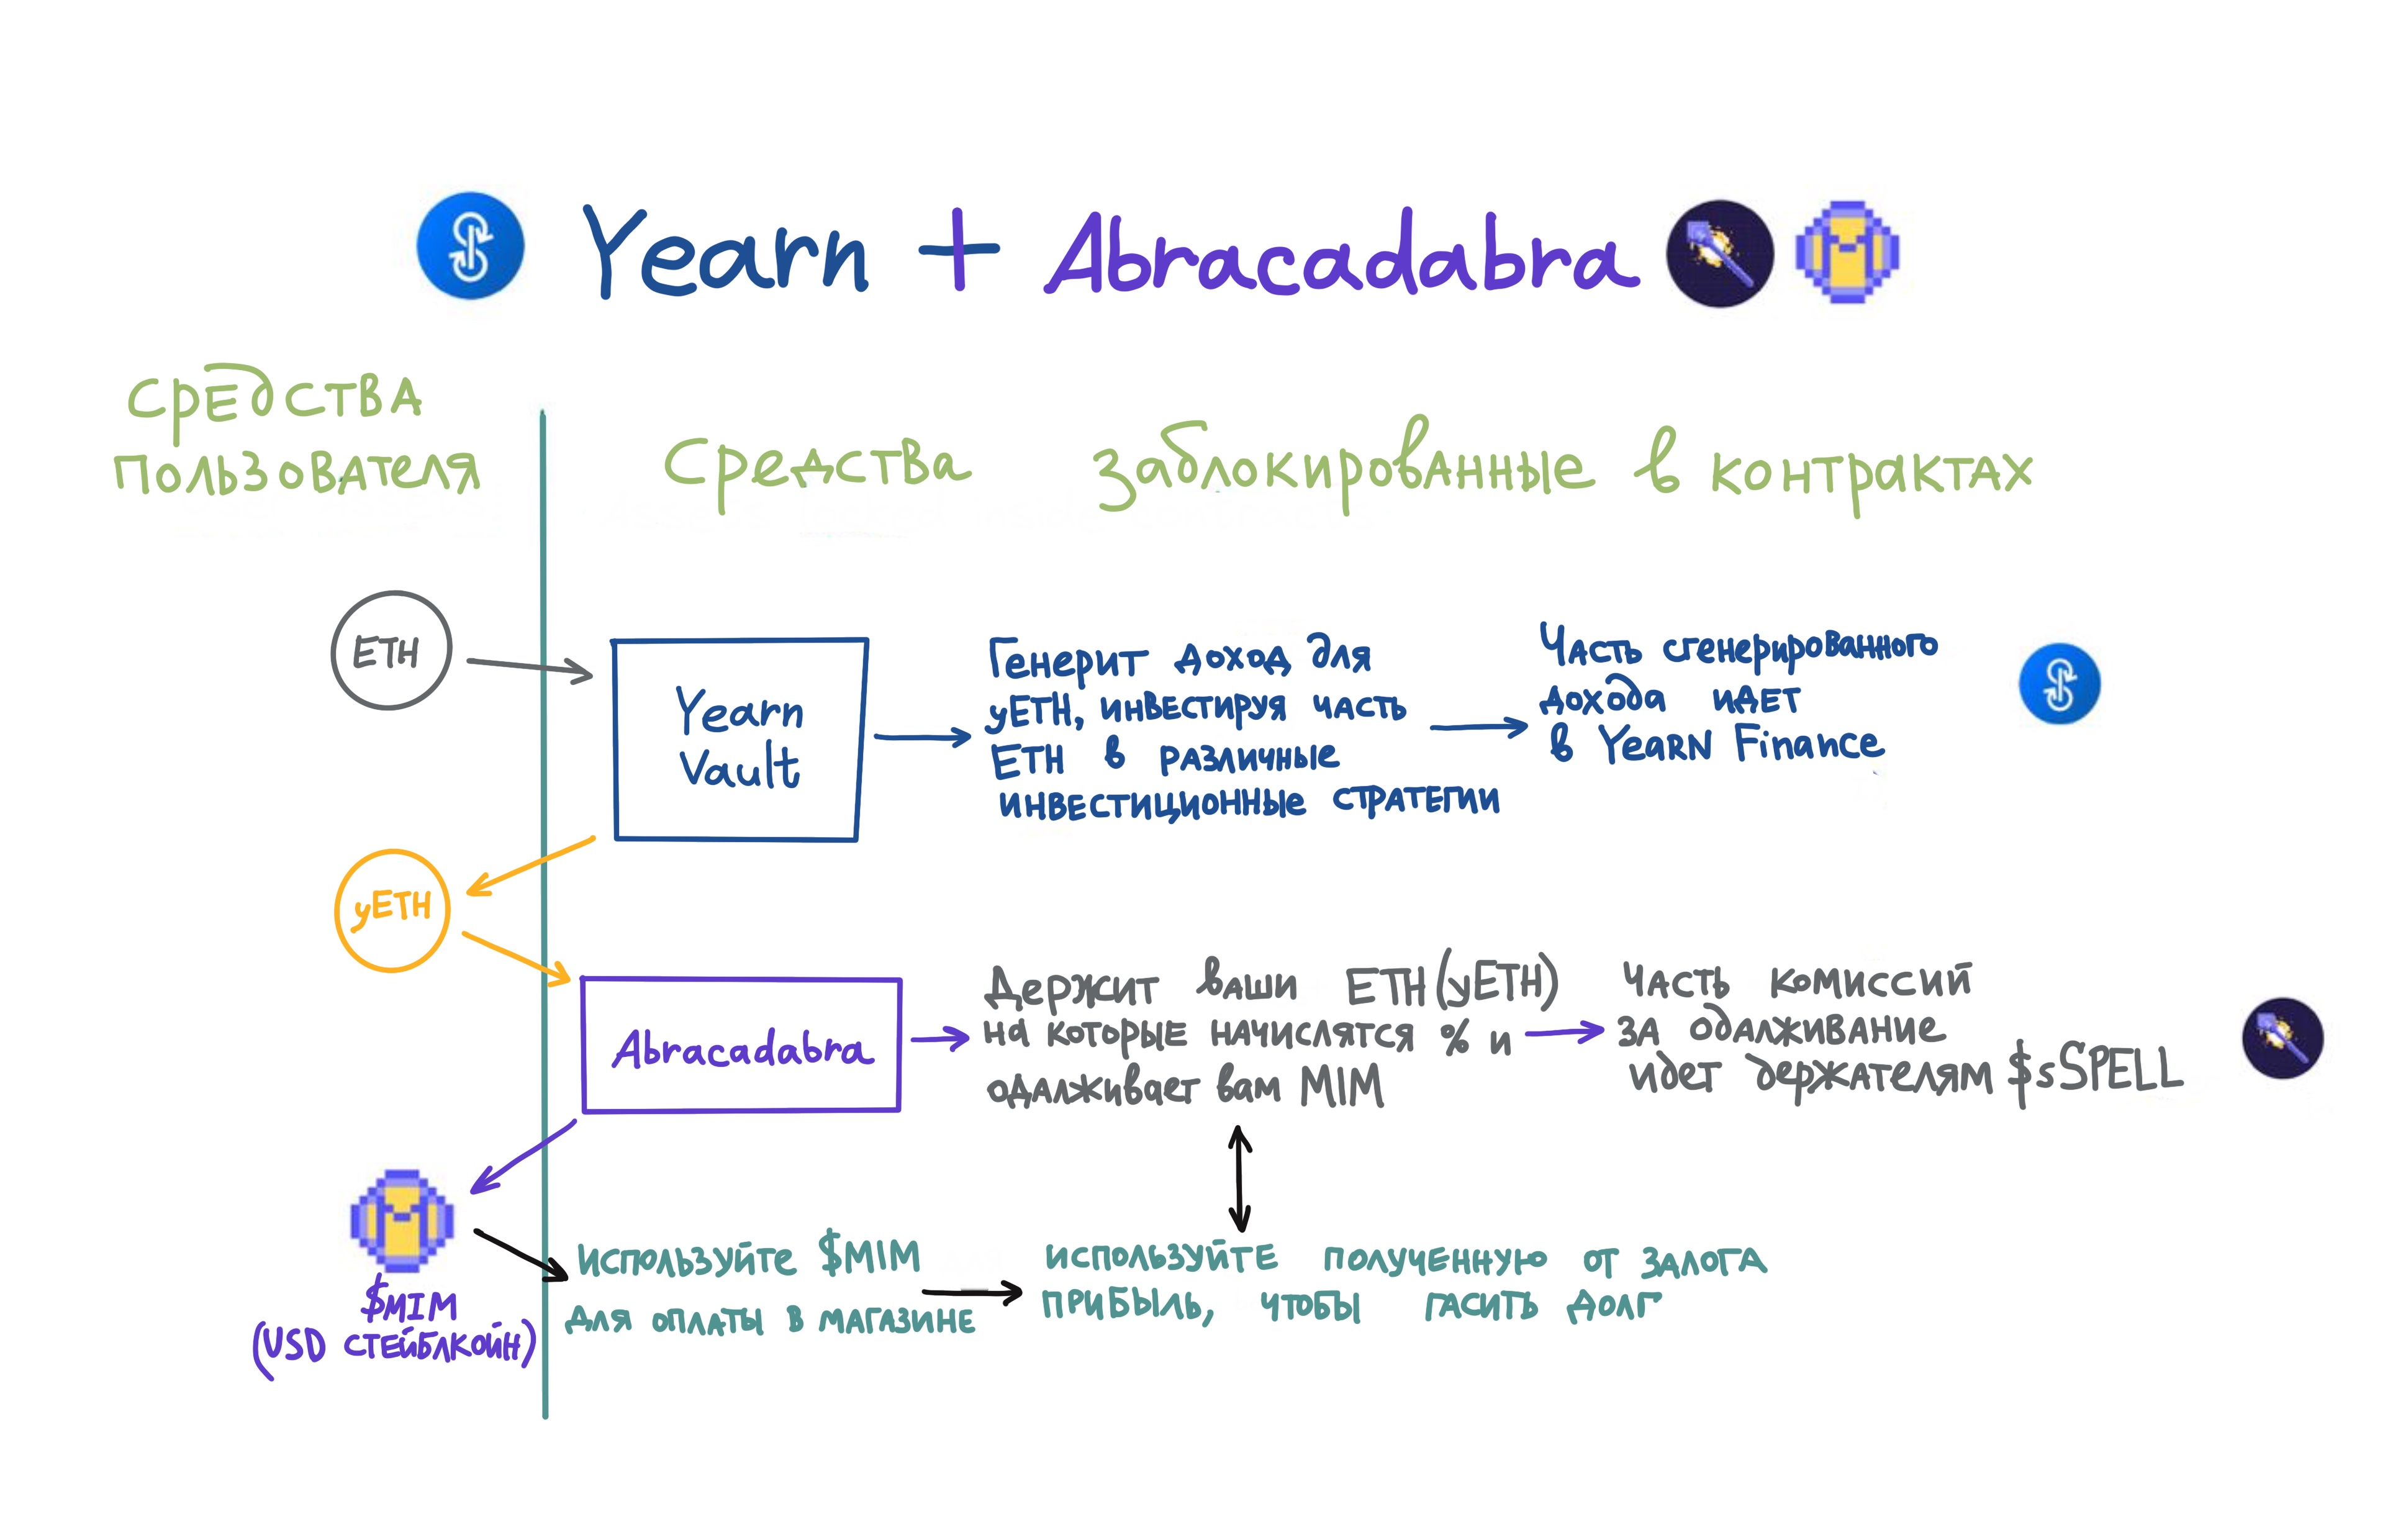 Yearn + Abracadabra
Средства
пользователя
Средства заблокированные в контрактах
ETH
Yearn
Vault
Генерит доход для
yETH, инвестируя часть
ETH в различные
инвестиционные стратегии
Часть сгенерированного
дохода идет
в Yearn Finance
yETH
Abracadabra
Держит ваши ETH (yETH)
на которые начислятся % и
одалживает вам MIM
Часть комиссий
за одалживание
идет держателям $sSPELL
$MIM
(USD стейблкойн)
Используйте $MIM
для оплаты в магазине
используйте полученную от залога
прибыль, чтобы гасить долг